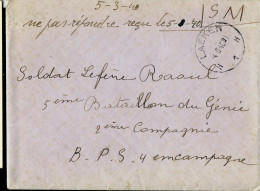 5-3-40
SM
ne pas répondre reçu le 5-3-40
LAEKEN
Soldat Lefèvre Raoul
5ième Bataillon du Génie
2ième Compagnie
B.P.S. 4 en campagne